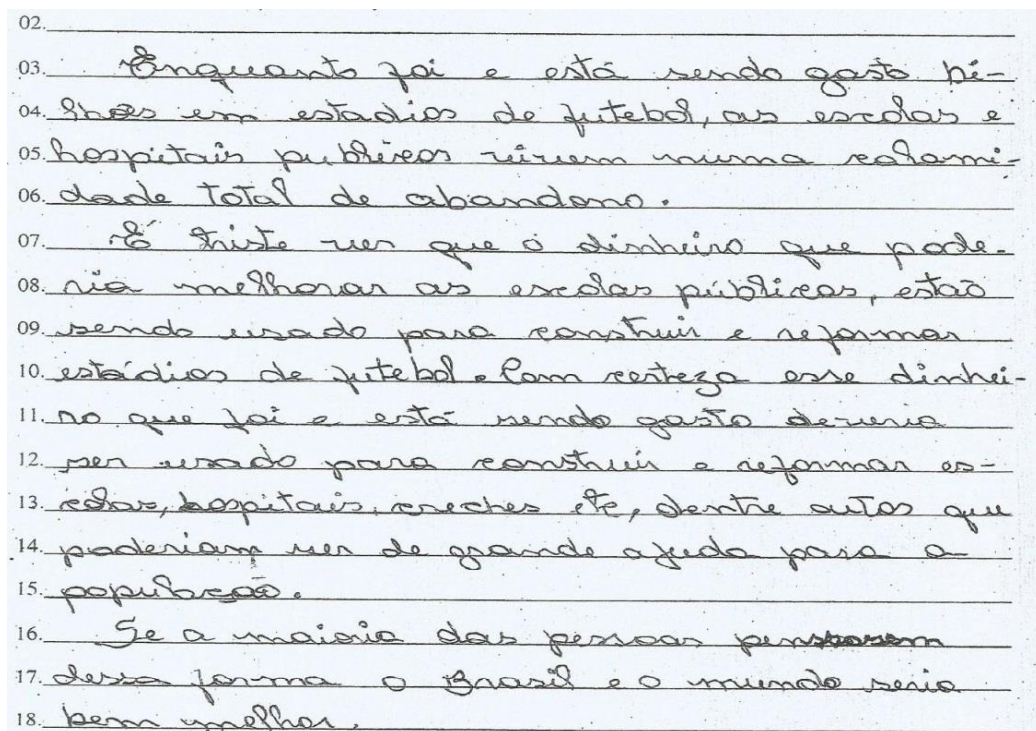 02.
03. Enquanto foi e está sendo gasto bi-
04. lhões em estadios de futebol, as escolas e
05. hospitais publicos vivem numa calami-
06. dade total de abandono.
07. É triste ver que o dinheiro que pode-
08. ria melhorar as escolas públicas, estão
09. sendo usado para construir e reformar
10. estádios de futebol. Com certeza esse dinhei-
11. ro que foi e está sendo gasto deveria
12. ser usado para construir e reformar es-
13. colas, hospitais, creches etc, dentre outos que
14. poderiam ser de grande ajuda para a
15. população.
16. Se a maioria das pessoas pensassem
17. dessa forma o Brasil e o mundo seria
18. bem melhor.